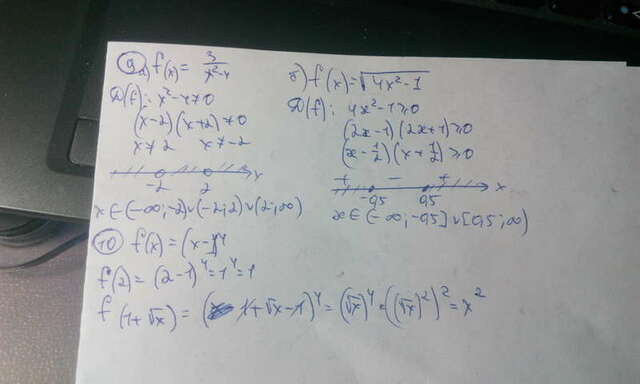 9 а) f(x) = 3/(x²-4)
D(f): x²-4≠0
(x-2)(x+2)≠0
x≠2 x≠-2
-2 2 x
x∈(-∞;-2)∪(-2;2)∪(2;∞)
б) f(x)=√(4x²-1)
D(f): 4x²-1≥0
(2x-1)(2x+1)≥0
(x-1/2)(x+1/2)≥0
+ - +
-0,5 0,5 x
x∈(-∞;-0,5]∪[0,5;∞)
10 f(x)=(x-1)⁴
f(2)=(2-1)⁴=1⁴=1
f(1+√x)=(1+√x-1)⁴=(√x)⁴=((√x)²)²=x²